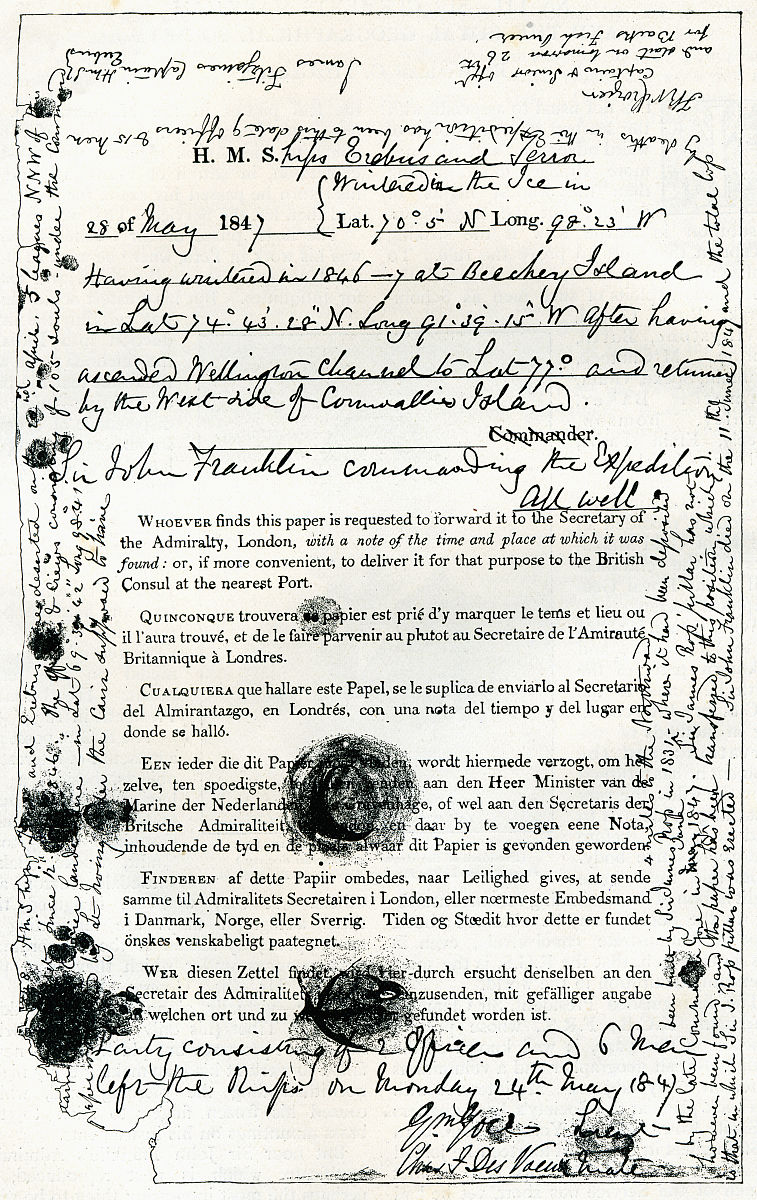 H. M. S. hips Erebus and Terror
Wintered in the Ice in
28 of May 1847 Lat. 70° 5' N Long. 98° 23' W
Having wintered in 1846–7 at Beechey Island
in Lat 74° 43' 28" N. Long 91° 39' 15" W After having
ascended Wellington Channel to Lat 77° and returned
by the West side of Cornwallis Island.
Commander.
Sir John Franklin commanding the Expedition
All well
WHOEVER finds this paper is requested to forward it to the Secretary of
the Admiralty, London, with a note of the time and place at which it was
found: or, if more convenient, to deliver it for that purpose to the British
Consul at the nearest Port.
QUINCONQUE trouvera ce papier est prié d'y marquer le tems et lieu ou
il l'aura trouvé, et de le faire parvenir au plutot au Secretaire de l'Amirauté
Britannique à Londres.
CUALQUIERA que hallare este Papel, se le suplica de enviarlo al Secretario
del Almirantazgo, en Londrés, con una nota del tiempo y del lugar en
donde se halló.
EEN ieder die dit Papier wordt hiermede verzogt, om het
zelve, ten spoedigste, aan den Heer Minister van de
Marine der Nederlanden of wel aan den Secretaris der
Britsche Admiraliteit, en daar by te voegen eene Nota,
inhoudende de tyd en de plaats alwaar dit Papier is gevonden geworden
FINDEREN af dette Papiir ombedes, naar Leilighed gives, at sende
samme til Admiralitets Secretairen i London, eller nœrmeste Embedsmand
i Danmark, Norge, eller Sverrig. Tiden og Stœdit hvor dette er fundet
önskes venskabeligt paategnet.
WER diesen Zettel findet, wird hier-durch ersucht denselben an den
Secretair des Admiralitets einzusenden, mit gefälliger angabe
an welchen ort und zu gefundet worden ist.
Party consisting of 2 Officers and 6 Men
left the Ships on Monday 24th May 1847
Gm Gore Lieut
Chas F Des Voeux Mate
and Erebus were deserted on the 22nd April, 5 leagues NNW of
of 105 souls under the Com
in Lat 69° 37' 42" Long 98° 41'
under the Cairn supposed to have
been built by Sir James Ross in 1831 where it had been deposited
4 miles to the Northward
by the late Commander Gore in June 1847. Sir James Ross' pillar has not
however been found and the paper has been transferred to this position which
is that in which Sir J. Ross pillar was erected — Sir John Franklin died on the 11th June 1847 and the total loss
by deaths in the Expedition has been to this date 9 officers & 15 men
James Fitzjames Captain HMS Erebus
FRM Crozier
Captain & Senior Offr
and start on tomorrow 26th
for Backs Fish River